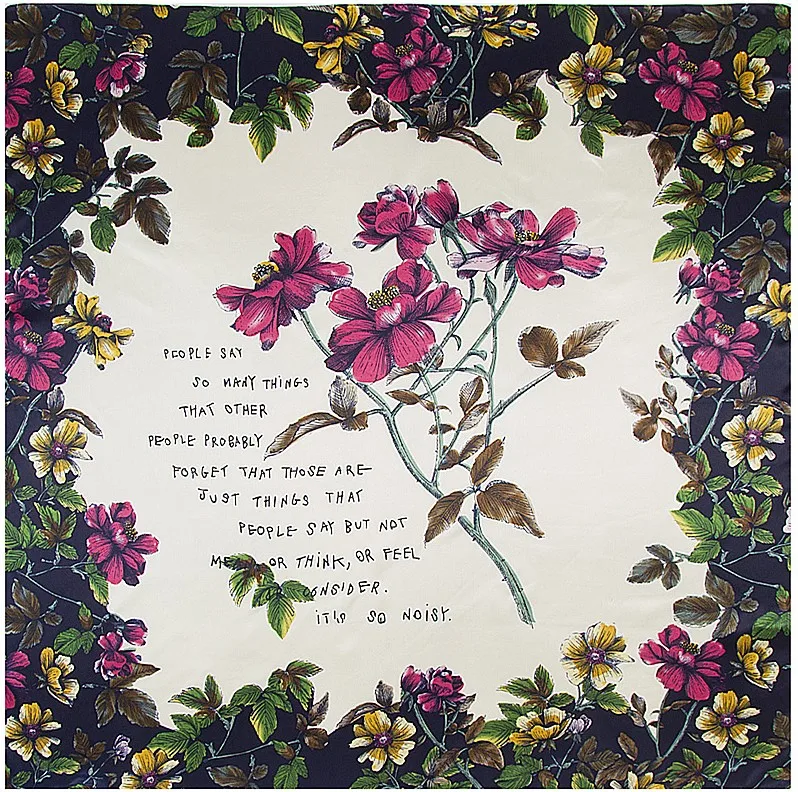 PEOPLE SAY
SO MANY THINGS
THAT OTHER
PEOPLE PROBABLY
FORGET THAT THOSE ARE
JUST THINGS THAT
PEOPLE SAY BUT NOT
OR THINK, OR FEEL
CONSIDER.
IT'S SO NOISY.